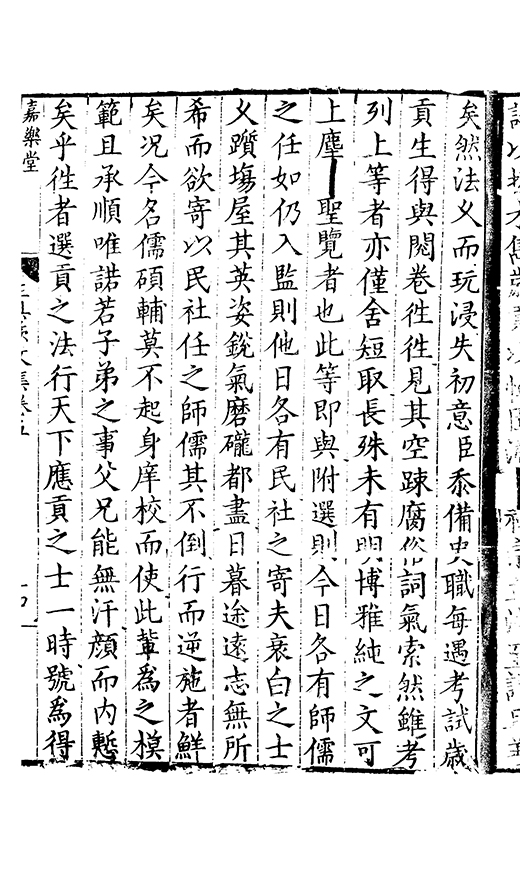 矣然法乂而玩浸失初意臣忝備史職每遇考試歲
貢生得與閱卷徃徃見其空踈腐俗詞氣索然雖考
列上等者亦僅舍短取長殊未有明博雅純之文可
上塵
聖覽者也此等即與附選則今日各有師儒
之任如仍入監則他日各有民社之寄夫衰白之士
乂躓塲屋其英姿銳氣磨礲都盡日暮途遠志無所
希而欲寄以民社任之師儒其不倒行而逆施者鮮
矣况今名儒碩輔莫不起身庠校而使此輩為之模
範且承順唯諾若子弟之事父兄能無汗顔而内慙
矣乎徃者選貢之法行天下應貢之士一時號為得
嘉樂堂
文集卷五